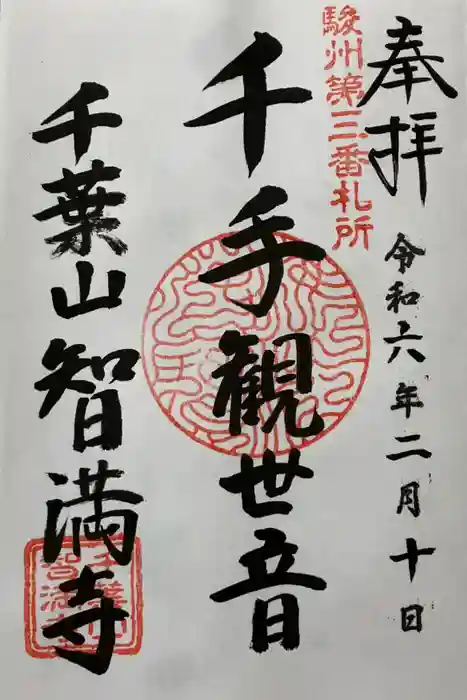 奉拝
令和六年二月十日
駿州第三番札所
千手観世音
千葉山智満寺